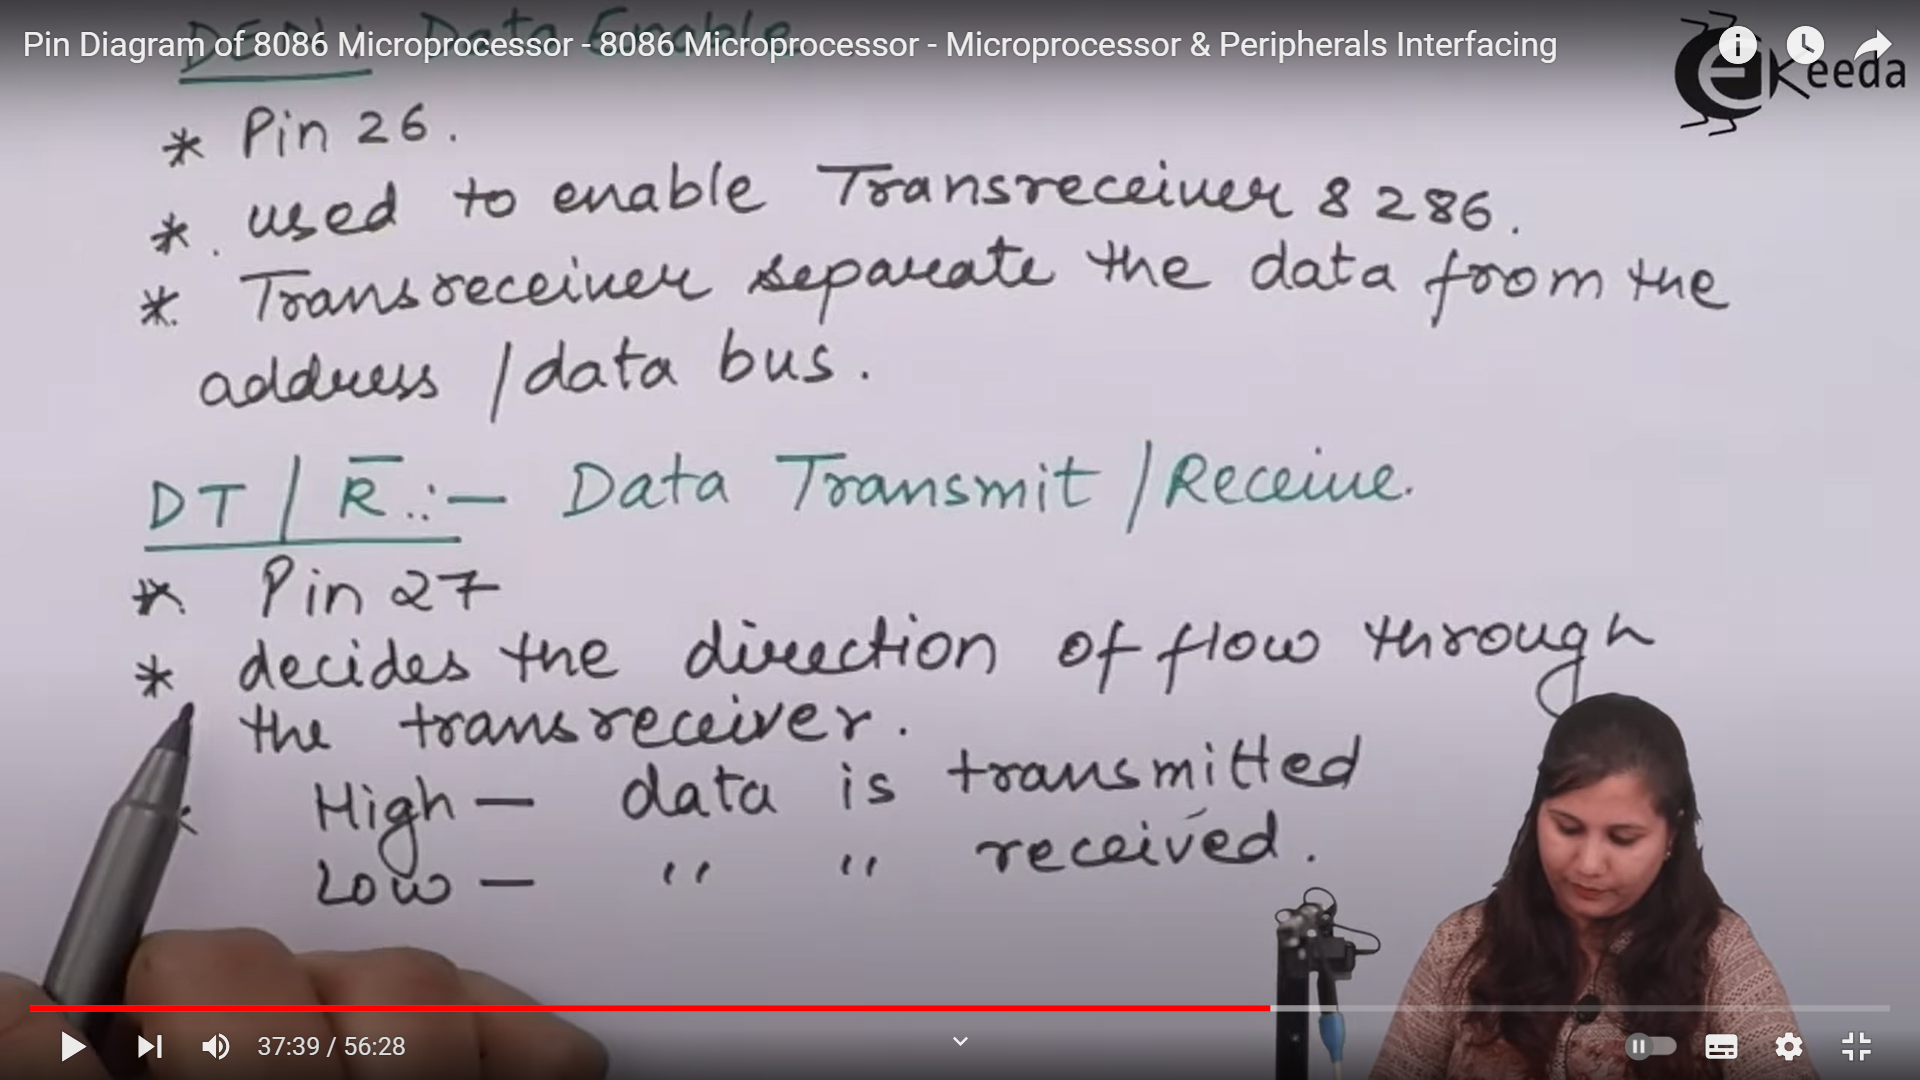 DEN : Data Enable
Pin Diagram of 8086 Microprocessor - 8086 Microprocessor - Microprocessor & Peripherals Interfacing
eKeeda
* Pin 26.
* used to enable Transreceiver 8286.
* Transreceiver separate the data from the
address / data bus.
DT / R̅ :- Data Transmit / Receive.
* Pin 27
* decides the direction of flow through
the transreceiver.
* High - data is transmitted
Low - " " received.
37:39 / 56:28